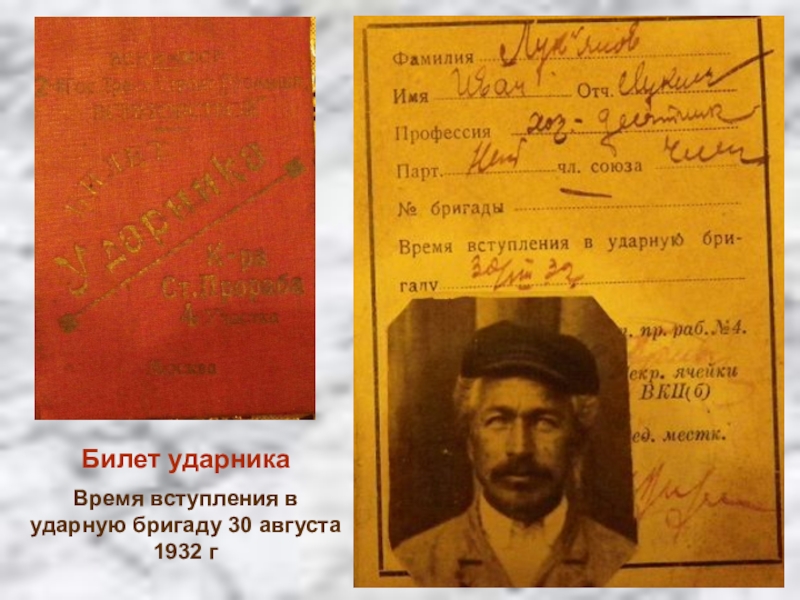 БИЛЕТ
Ударника
К-ра
Ст. Прораба
4 Участка
Москва
Билет ударника
Время вступления в
ударную бригаду 30 августа
1932 г
Фамилия Лукьянов
Имя Иван Отч. Лукич
Профессия хоз-десятник
Парт. Нет чл. союза член
№ бригады —
Время вступления в ударную бри-
гаду 30/VIII 32
пр. раб. №4.
екр. ячейки
ВКП(б)
ед. местк.